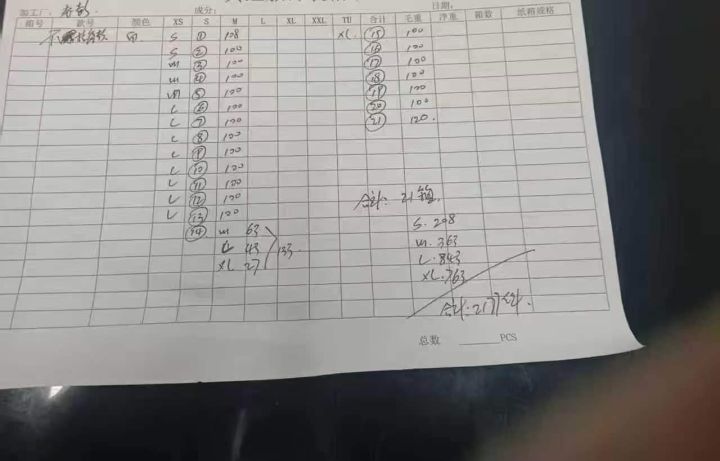 加工厂: 成分: 日期:
箱号 款号 颜色 XS S M L XL XXL TU 合计 毛重 净重 箱数 纸箱规格
S ① 108 XL ⑮ 100
S ② 100 ⑯ 100
m ③ 100 ⑰ 100
m ④ 100 ⑱ 100
m ⑤ 100 ⑲ 100
L ⑥ 100 ⑳ 100
L ⑦ 100 ㉑ 120.
L ⑧ 100
L ⑨ 100
L ⑩ 100
L ⑪ 100
L ⑫ 100 合计: 21箱.
L ⑬ 100
⑭ m 63 S. 208
L 43 133 m. 363
XL 27 L. 843
XL. 763
合计: 2177件.
总数 ______ PCS